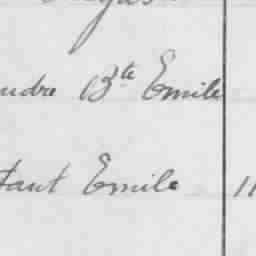 udre Bte Emile
tant Emile 11